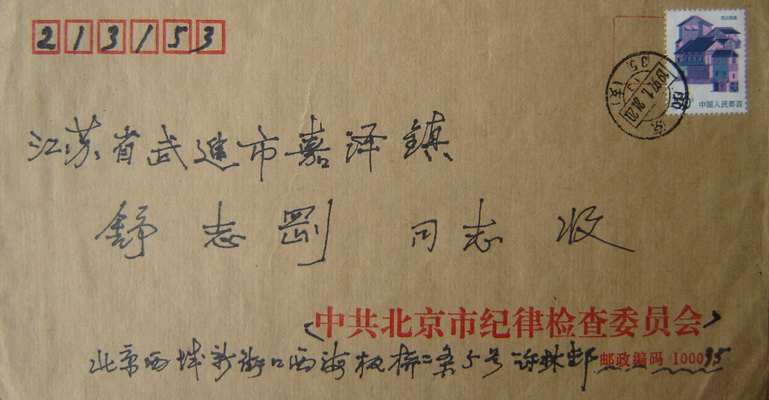 213153
中国人民邮政
江苏省武进市嘉泽镇
舒志刚 同志 收
中共北京市纪律检查委员会
北京西城新街口西海板桥二条5号
邮政编码 100035